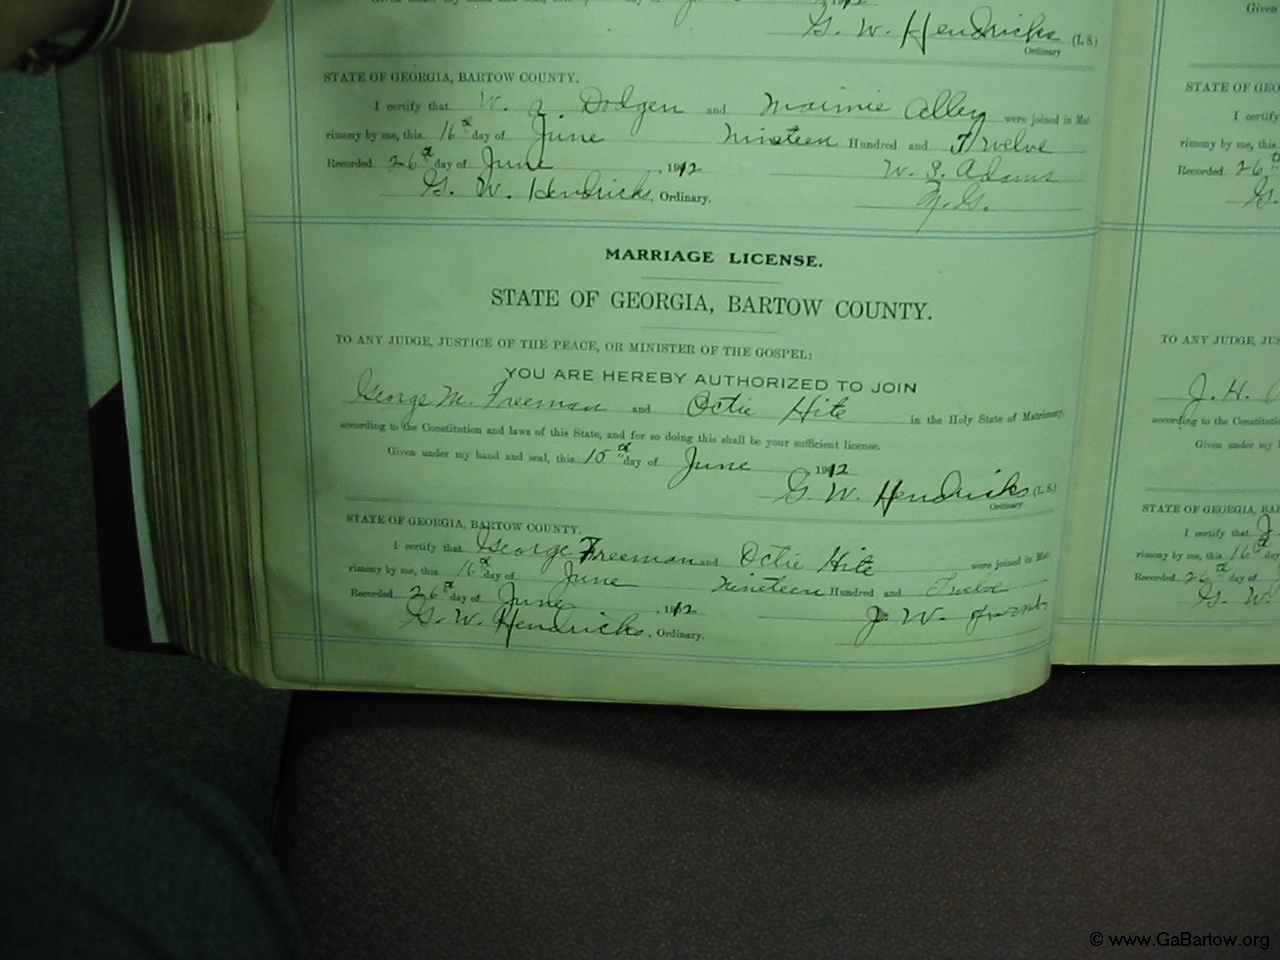 Given under my hand and seal, 1912
G. W. Hendricks (L. S.)
Ordinary
STATE OF GEORGIA, BARTOW COUNTY.
I certify that W. J Dodgen and Maimie Alley were joined in Mat
rimony by me, this 16th day of June Nineteen Hundred and Twelve
Recorded 26th day of June, 1912 W. S. Adams
G. W. Hendricks, Ordinary. M. G.
MARRIAGE LICENSE.
STATE OF GEORGIA, BARTOW COUNTY.
TO ANY JUDGE, JUSTICE OF THE PEACE, OR MINISTER OF THE GOSPEL:
YOU ARE HEREBY AUTHORIZED TO JOIN
George M. Freeman and Octie Hite in the Holy State of Matrimony,
according to the Constitution and laws of this State, and for so doing this shall be your sufficient license.
Given under my hand and seal, this 15th day of June 1912
G. W. Hendricks (L. S.)
Ordinary
STATE OF GEORGIA, BARTOW COUNTY.
I certify that George Freeman and Octie Hite were joined in Mat
rimony by me, this 16th day of June Nineteen Hundred and Twelve
Recorded 26th day of June, 1912 J. W.
G. W. Hendricks, Ordinary.
Given
STATE OF GEO
I certify
rimony by me, this
Recorded 26th
G.
TO ANY JUDGE, JUS
J. H.
according to the Constitutio
Given under my h
STATE OF GEORGIA, BAR
I certify that J
rimony by me, this 16th
Recorded 26th day of
G. W.
© www.GaBartow.org